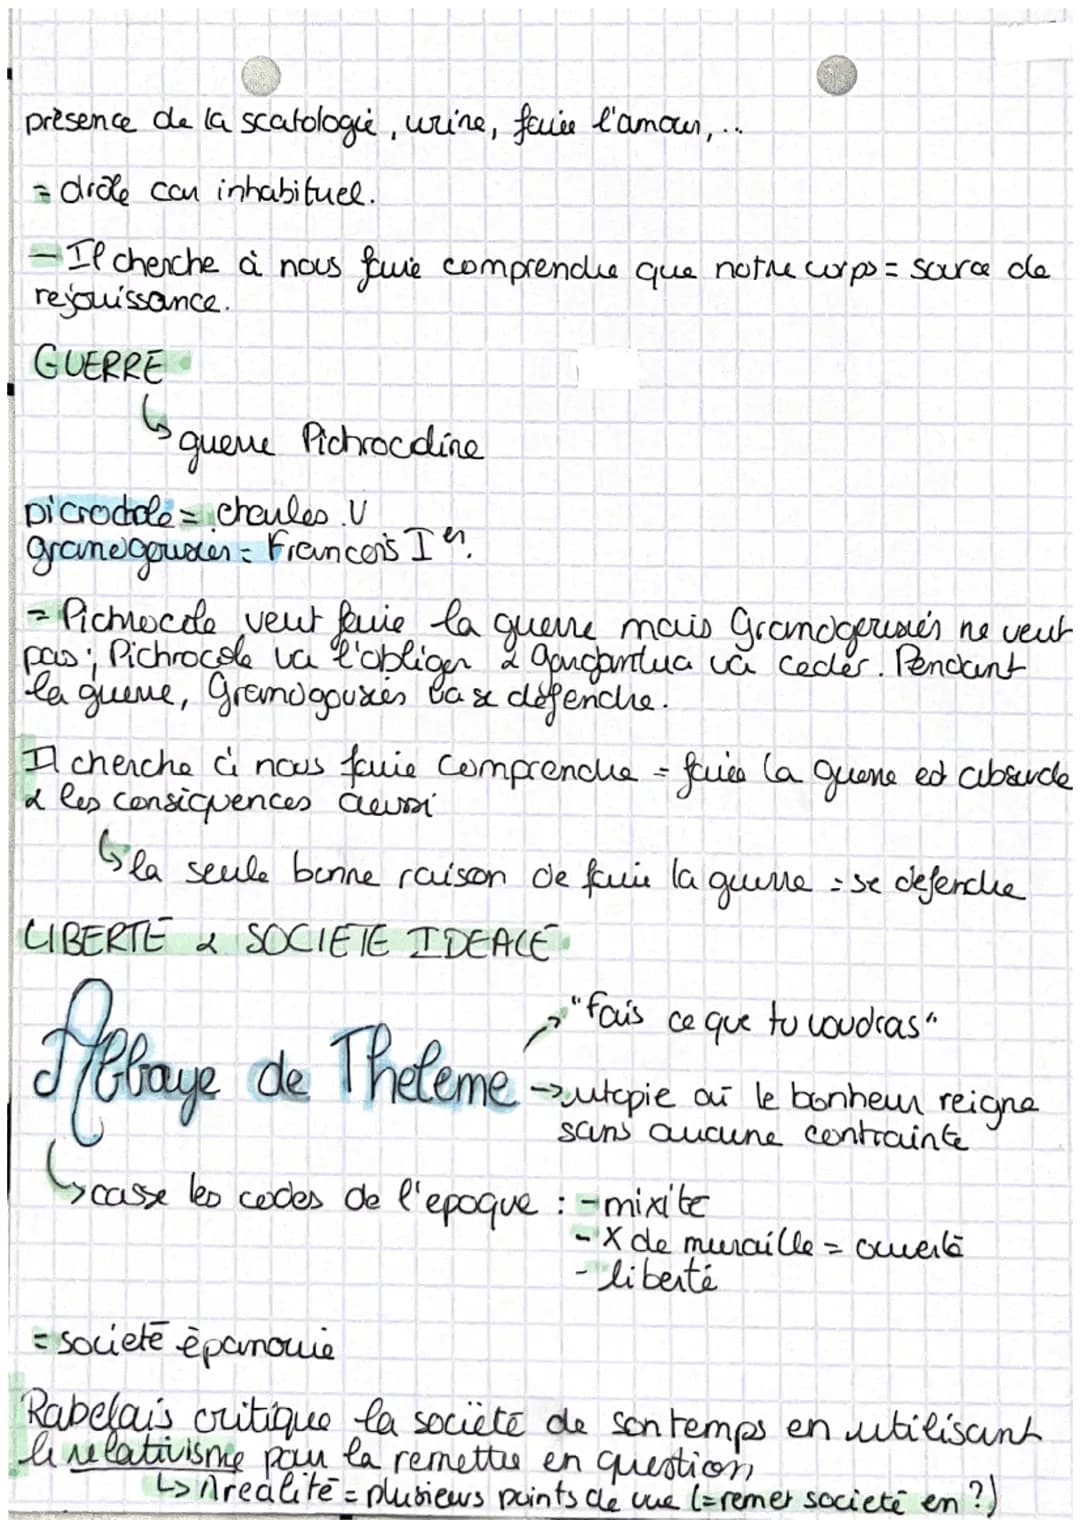 présence de la scatologie, urine, faire l'amour, ...
= drôle car inhabituel.
- Il cherche à nous faire comprendre que notre corps = source de
rejouissance.
GUERRE
↳ guerre Pichrocoline
picrocole = charles V
grandgousier = Francois Ier.
= Pichrocole veut faire la guerre mais Grandgousiés ne veut
pas ; Pichrocole va l'obliger & gargantua va ceder. Pendant
la guerre, Grandgousiés va se défendre.
Il cherche à nous faire comprendre = faire la guerre est absurde
& les consiquences aussi
↳ la seule bonne raison de faire la guerre = se defendre
LIBERTE & SOCIETE IDEALE
Abbaye de Theleme
→ "fais ce que tu voudras"
→ utopie où le bonheur reigne
sans aucune contrainte
↳ casse les codes de l'epoque : - mixite
- X de muraille = ouverte
- liberté
= societé épanouie
Rabelais critique la société de son temps en utilisant
le relativisme pour la remettre en question
↳ 1 realité = plusieurs points de vue (= remet societé en ?)